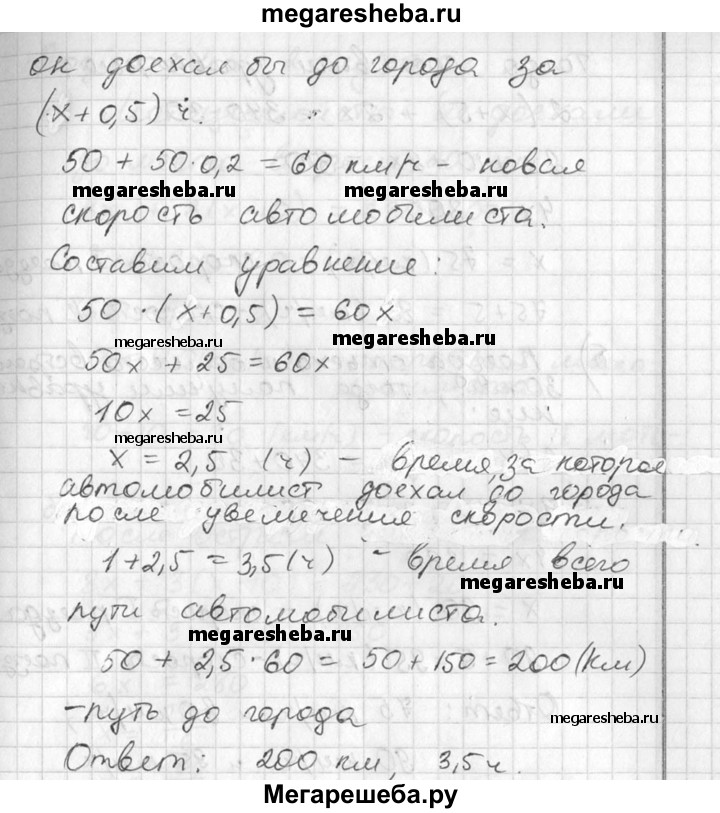 megaresheba.ru
он доехал бы до города за
(x + 0,5) ч.
50 + 50·0,2 = 60 км/ч - новая
megaresheba.ru megaresheba.ru
скорость автомобилиста.
Составим уравнение:
50 · (x+0,5) = 60x
megaresheba.ru megaresheba.ru
50x + 25 = 60x
10x = 25
megaresheba.ru
x = 2,5 (ч) - время, за которое
автомобилист доехал до города
после увеличения скорости.
1 + 2,5 = 3,5 (ч) - время всего
megaresheba.ru
пути автомобилиста.
megaresheba.ru
50 + 2,5 · 60 = 50 + 150 = 200 (км)
- путь до города
megaresheba.ru
Ответ: 200 км, 3,5 ч.
Мегарешеба.ру